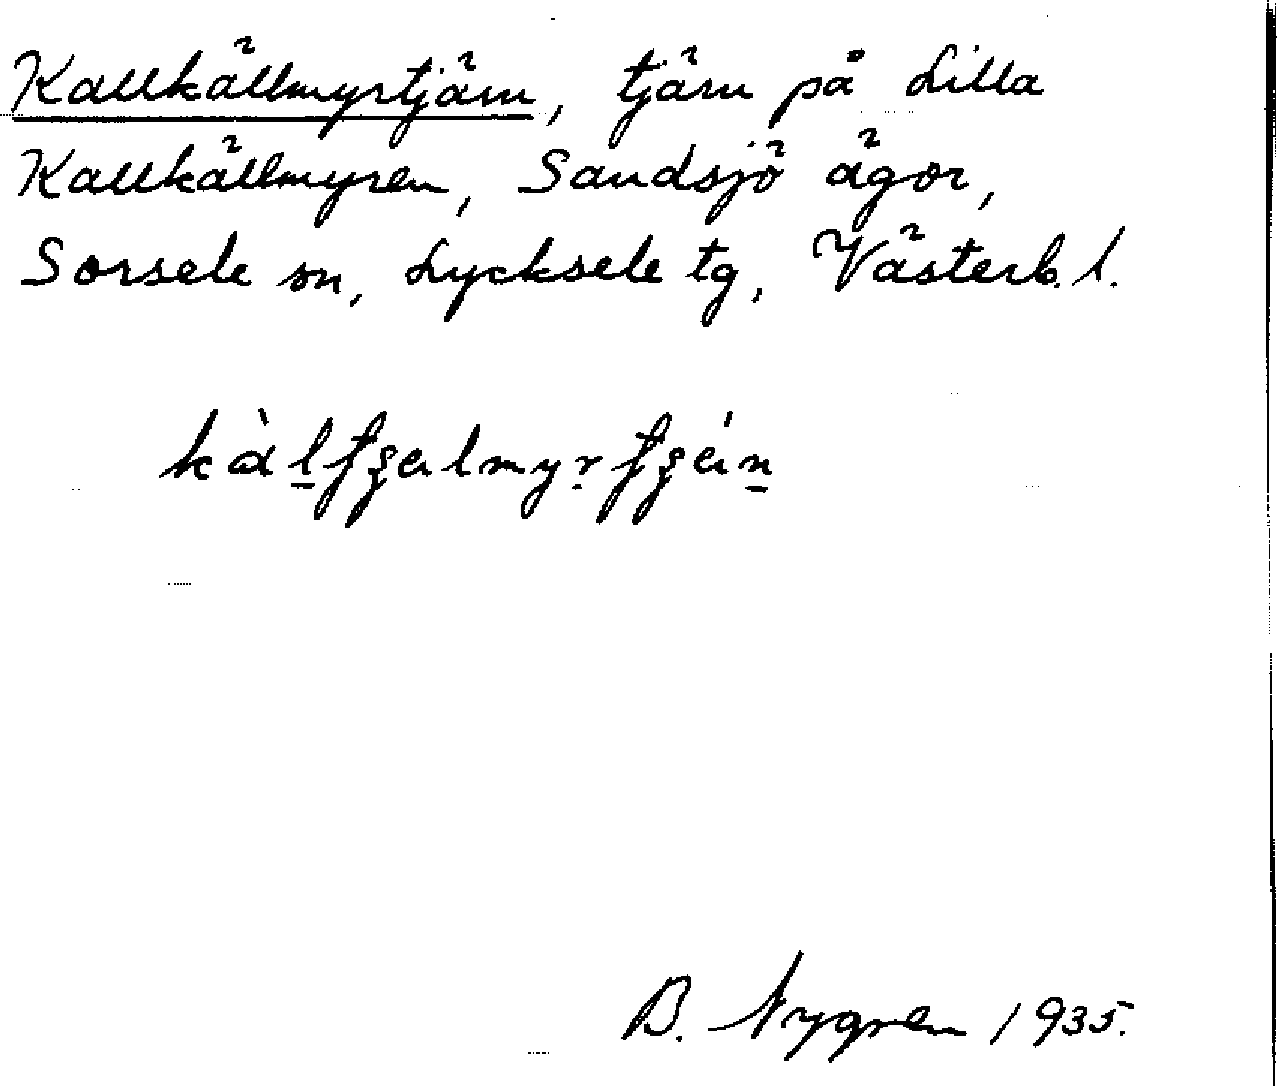 Kallkällmyrtjärn, tjärn på Lilla
Kallkällmyren, Sandsjö ägor,
Sorsele sn, Lycksele tg, Västerb. l.
B. Nygren 1935.